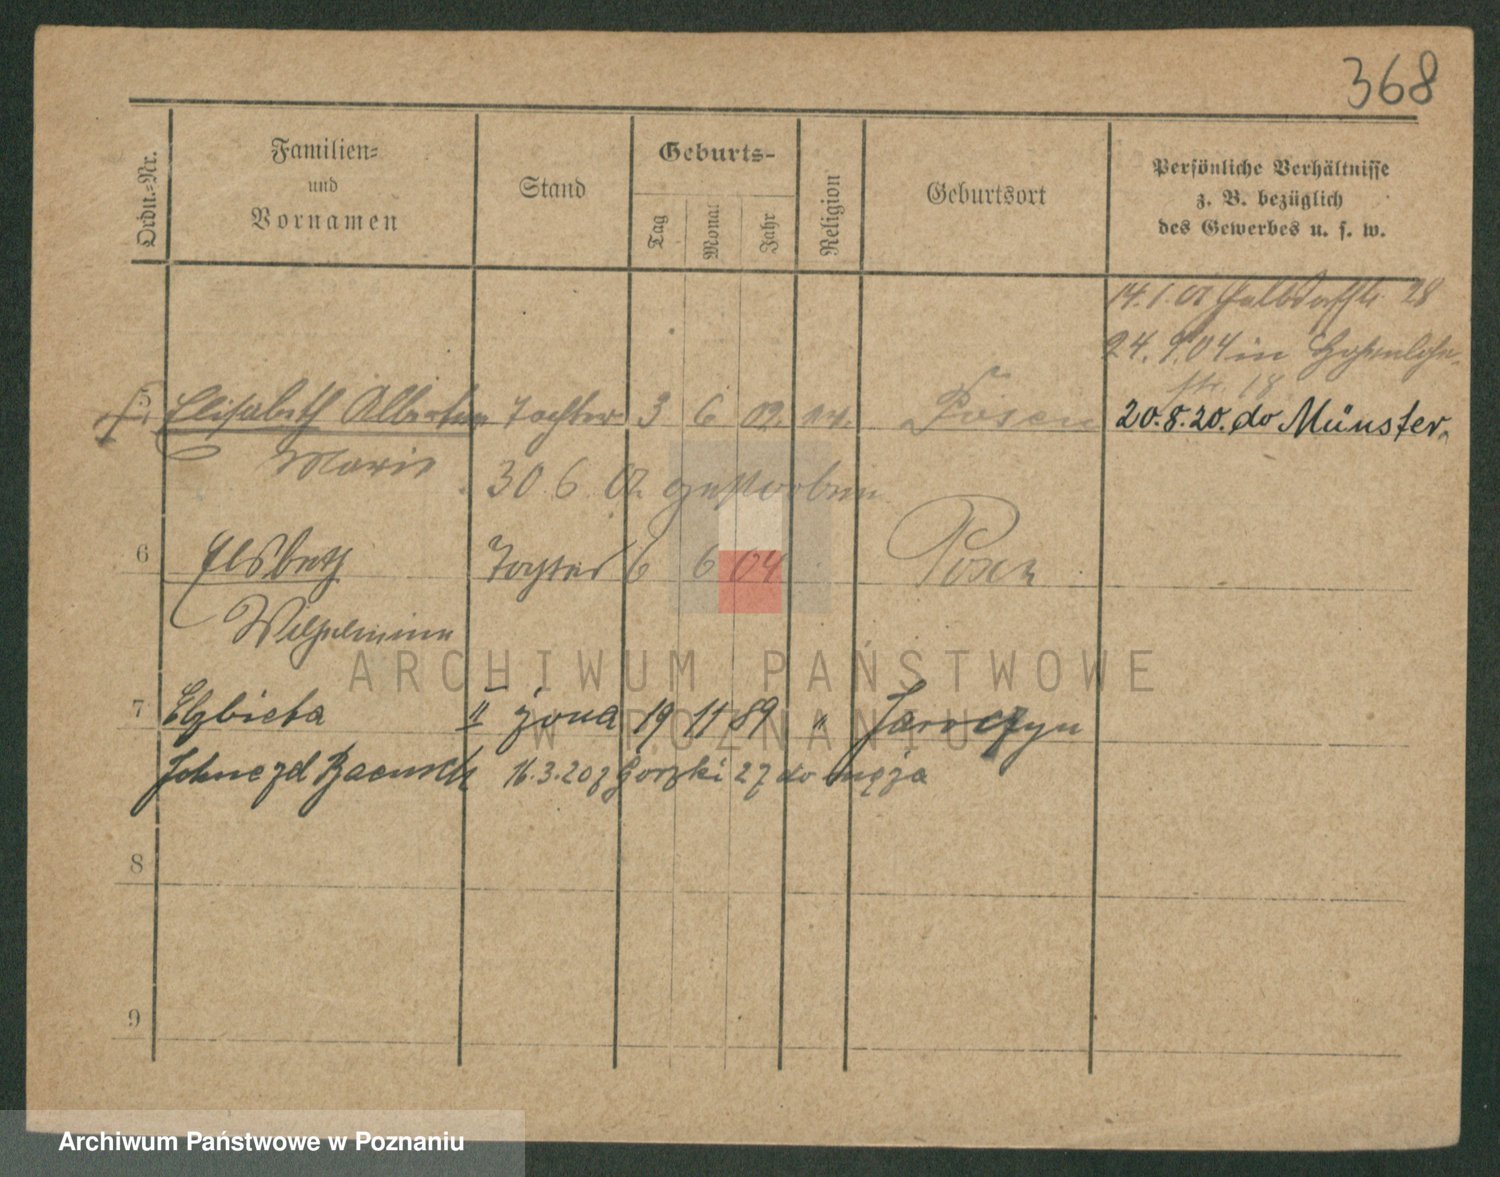 368
Ordn.-Nr.
Familien-
und
Vornamen
Stand
Geburts-
Tag
Monat
Jahr
Religion
Geburtsort
Persönliche Verhältnisse
z. B. bezüglich
des Gewerbes u. s. w.
14.1.02 28
24. 9. 04 in
str. 18
5 Elisabeth Tochter 3 6 02. ev. Posen 20.8.20. do Münster.
Marie 30 6 02 gestorben
6 Elsbeth Tochter 6 6 04 Posen
Wilhelmine
7 Elzbieta II żona 19 11 89 " Jaroczyn
16.3.20 z Gorzki 27 do męża
8
9
ARCHIWUM PAŃSTWOWE
W POZNANIU
Archiwum Państwowe w Poznaniu